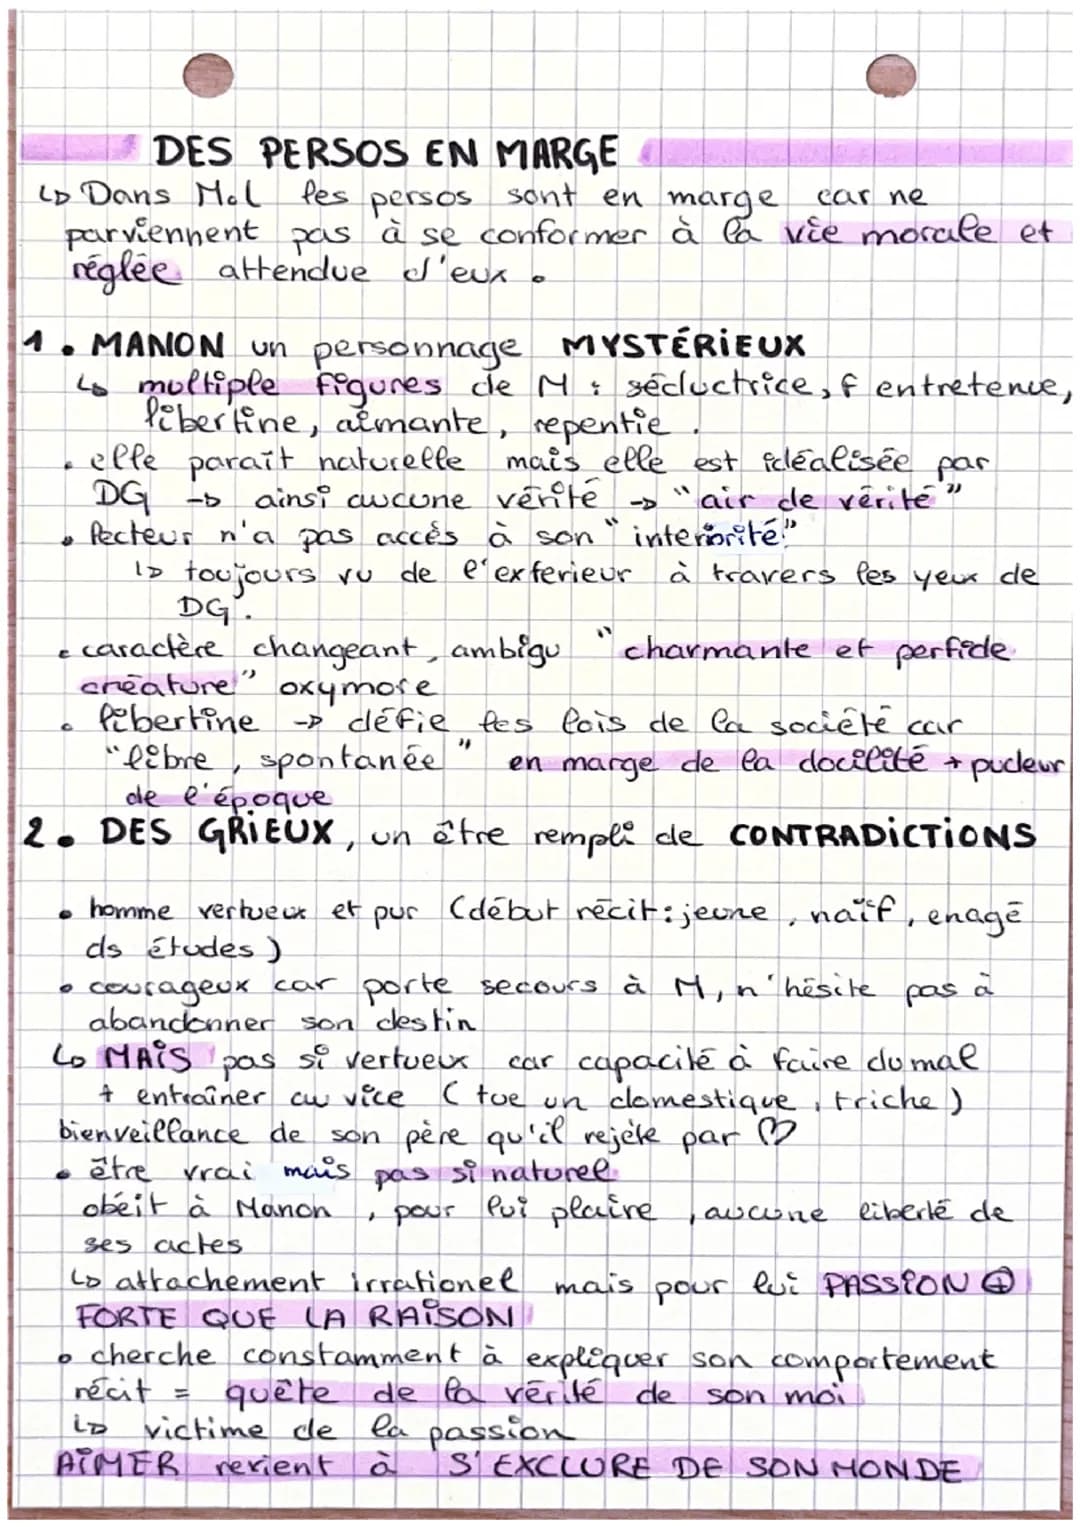 DES PERSOS EN MARGE
↳ Dans M.L les persos sont en marge car ne
parviennent pas à se conformer à la vie morale et
réglée attendue d'eux.
1. MANON un personnage MYSTÉRIEUX
↳ multiple figures de M : séductrice, f entretenue,
libertine, aimante, repentie.
• elle paraît naturelle mais elle est idéalisée par
DG → ainsi aucune vérité → "air de vérité"
• lecteur n'a pas accès à son "interiorité"
↳ toujours vu de l'exterieur à travers les yeux de
DG.
• caractère changeant, ambigu "charmante et perfide
créature" oxymore
• libertine → défie les lois de la société car
"libre, spontanée" en marge de la docilité + pudeur
de l'époque
2. DES GRIEUX, un être rempli de CONTRADICTIONS
• homme vertueux et pur (début récit : jeune, naïf, enagé
ds études)
• courageux car porte secours à M, n'hésite pas à
abandonner son destin
↳ MAIS pas si vertueux car capacité à faire du mal
+ entraîner au vice (tue un domestique, triche)
bienveillance de son père qu'il rejète par ♡
• être vrai mais pas si naturel
obéit à Manon, pour lui plaire, aucune liberté de
ses actes
↳ attachement irrationel mais pour lui PASSION ⊕
FORTE QUE LA RAISON
• cherche constamment à expliquer son comportement
récit = quête de la vérité de son moi
↳ victime de la passion
AIMER revient à S'EXCLURE DE SON MONDE